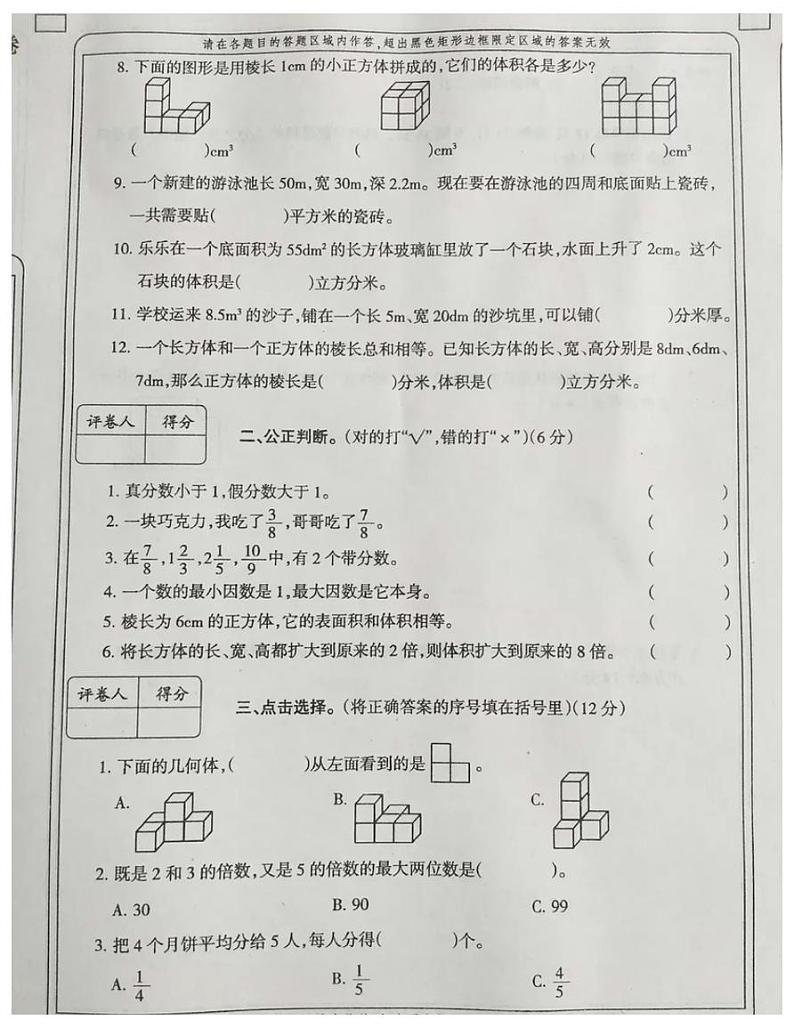 请在各题目的答题区域内作答,超出黑色矩形边框限定区域的答案无效
8. 下面的图形是用棱长 1cm 的小正方体拼成的,它们的体积各是多少?
(　　　)cm³　　　(　　　)cm³　　　(　　　)cm³
9. 一个新建的游泳池长 50m,宽 30m,深 2.2m。现在要在游泳池的四周和底面贴上瓷砖,
一共需要贴(　　　)平方米的瓷砖。
10. 乐乐在一个底面积为 55dm² 的长方体玻璃缸里放了一个石块,水面上升了 2cm。这个
石块的体积是(　　　)立方分米。
11. 学校运来 8.5m³ 的沙子,铺在一个长 5m、宽 20dm 的沙坑里,可以铺(　　　)分米厚。
12. 一个长方体和一个正方体的棱长总和相等。已知长方体的长、宽、高分别是 8dm、6dm、
7dm,那么正方体的棱长是(　　　)分米,体积是(　　　)立方分米。
评卷人　得分
二、公正判断。(对的打“√”,错的打“×”)(6 分)
1. 真分数小于 1,假分数大于 1。(　　　)
2. 一块巧克力,我吃了 3/8 ,哥哥吃了 7/8 。(　　　)
3. 在 7/8 ,1 2/3 ,2 1/5 , 10/9 中,有 2 个带分数。(　　　)
4. 一个数的最小因数是 1,最大因数是它本身。(　　　)
5. 棱长为 6cm 的正方体,它的表面积和体积相等。(　　　)
6. 将长方体的长、宽、高都扩大到原来的 2 倍,则体积扩大到原来的 8 倍。(　　　)
评卷人　得分
三、点击选择。(将正确答案的序号填在括号里)(12 分)
1. 下面的几何体,(　　　)从左面看到的是　　。
A.　　　B.　　　C.
2. 既是 2 和 3 的倍数,又是 5 的倍数的最大两位数是(　　　)。
A. 30　　　B. 90　　　C. 99
3. 把 4 个月饼平均分给 5 人,每人分得(　　　)个。
A. 1/4　　　B. 1/5　　　C. 4/5